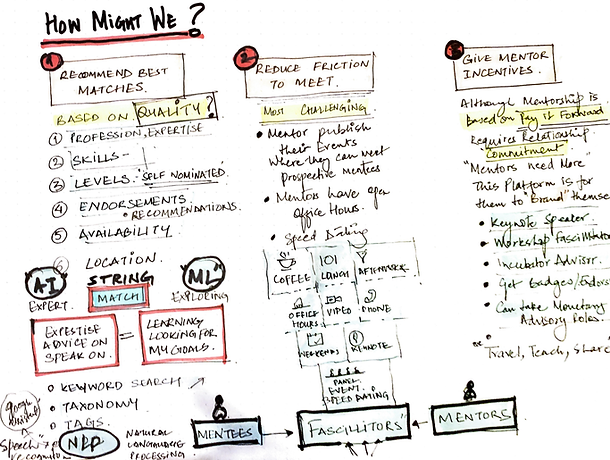 How Might We?
1
RECOMMEND BEST
MATCHES.
BASED ON QUALITY?
① PROFESSION, EXPERTISE
② SKILLS -
③ LEVELS. "SELF NOMINATED."
④ ENDORSEMENTS
• RECOMMENDATIONS.
⑤ AVAILABILITY.
⑥ LOCATION.
STRING
MATCH
AI
EXPERT.
ML
EXPLORING
EXPERTISE
ADVICE ON
SPEAK ON.
=
LEARNING
LOOKING FOR
MY GOALS.
○ KEYWORD SEARCH
○ TAXONOMY
○ TAGS.
NLP
NATURAL
LANGUAGE
PROCESSING
2
REDUCE FRICTION
TO MEET.
MOST CHALLENGING
• Mentor publish
their Events
Where they can meet
prospective mentees
• Mentors have open
Office Hours.
• Speed Dating
COFFEE
101
LUNCH
OFFICE
HOURS
VIDEO
PHONE
WEEKENDS
REMOTE
PANEL
EVENT
SPEED DATING
MENTEES
FASCILLITORS"
MENTORS
3
GIVE MENTOR
INCENTIVES.
Although Mentorship is
based on Pay it Forward
Requires Relationship
Commitment
"Mentors need More"
This Platform is for
them to "Brand" themse
• Keynote Speaker
• Workshop Fascillitator
• Incubator Advisor.
• Get Badges/Endors
• Can take Monetary
Advisory Roles.
• Travel, Teach, Share